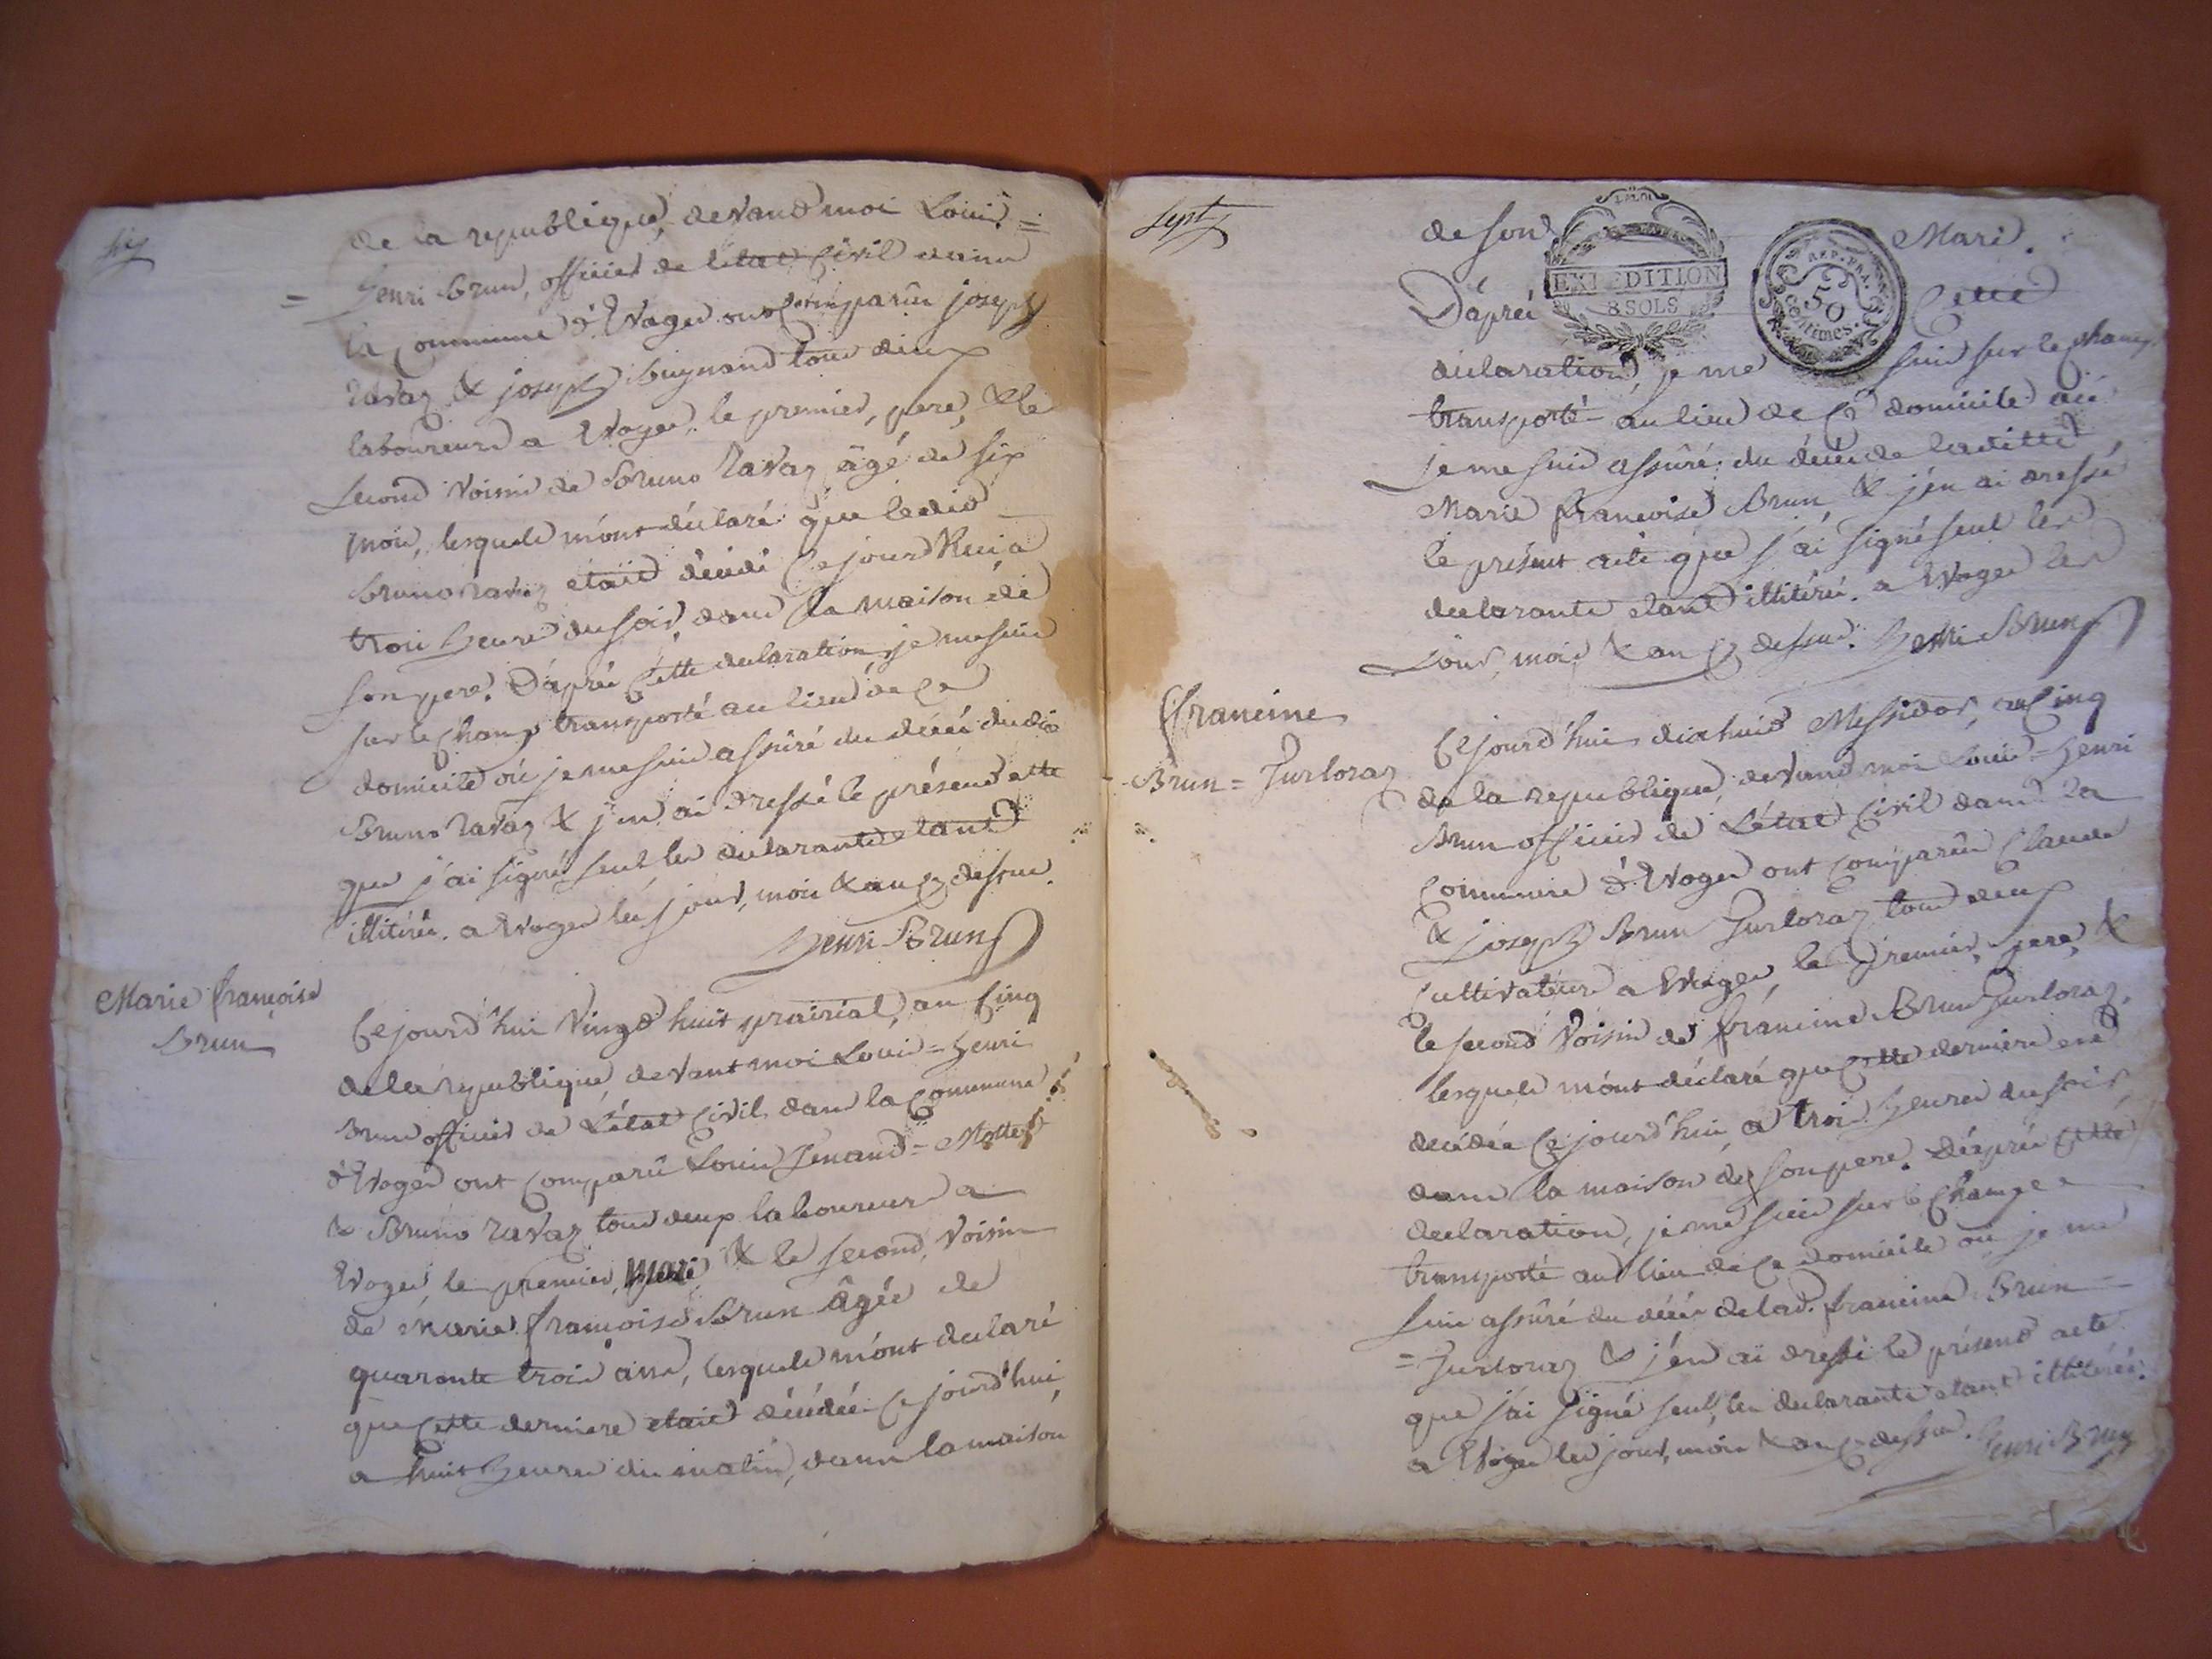 six
de la republique, devand moi Louis =
= henri brun, officier de l'état Civil dans
la Commune d'Woger ont Comparûs joseph
ravaz & joseph buynand tous deux
laboureurs a Woger, le premier, pere, & le
second voisin de Bruno ravaz âgé de six
mois, lesquels m'ont déclaré que ledit
bruno ravaz etait décédé Cejourd'hui a
trois heures du soir, dans la maison de
son pere. D'après Cette declaration, je me suis
sur le Champ transporté au lieu de Ce
domicile où je me suis assûré du décés dudit
Bruno ravaz & j'en ai dressé le présend acte
que j'ai signé seul, les declarants etant
illitérés. a Woger les jour, mois & an Cy dessus.
henri Brun
Marie françoise
Brun
Cejourd'hui vingt huit prairial, an Cinq
de la republique, devant moi Louis = henri
Brun officier de L'état Civil dans la Commune
d'Woger ont Comparû Louis = Mottet
& Bruno ravaz tous deux laboureurs a
Woger, le premier, mari & le second, voisin
de Marie françoise Brun âgée de
quarante trois ans, lesquels m'ont declaré
que Cette derniere etait décédée Cejourd'hui
a huit heures du matin, dans la maison
sept
de son Mari.
EXPEDITION
8 SOLS
REP. FRA.
50
Centimes.
D'après Cette
déclaration, je me suis sur le champ
transporté au lieu de Ce domicile où
je me suis assûré du décés de laditte
Marie françoise Brun, & j'en ai dressé
le présent acte que j'ai signé seul les
declarants etant illitérés. a Woger les
Jour, mois & an Cy dessus. henri Brun
francine
Brun = Gurloraz
Cejourd'hui dix huit Messidor, an Cinq
de la republique, devand moi Louis = henri
Brun officier de L'état Civil dans la
Commune d'Woger ont Comparûs Claude
& joseph Brun Gurloraz tous deux
Cultivateurs a Woger, le premier, pere, &
le second voisin de francine Brun Gurloraz,
lesquels m'ont déclaré que Cette derniere est
decédée Cejourd'hui, a trois heures du soir,
dans la maison de son pere. D'après Cette
declaration, je me suis sur le Champ
transporté au lieu de Ce domicile où je me
suis assûré du décés de lad. francine Brun =
= Gurloraz & j'en ai dressé le présend acte
que j'ai signé seul, les declarants etant illitérés.
a Woger les jour, mois & an Cy dessus. henri Brun